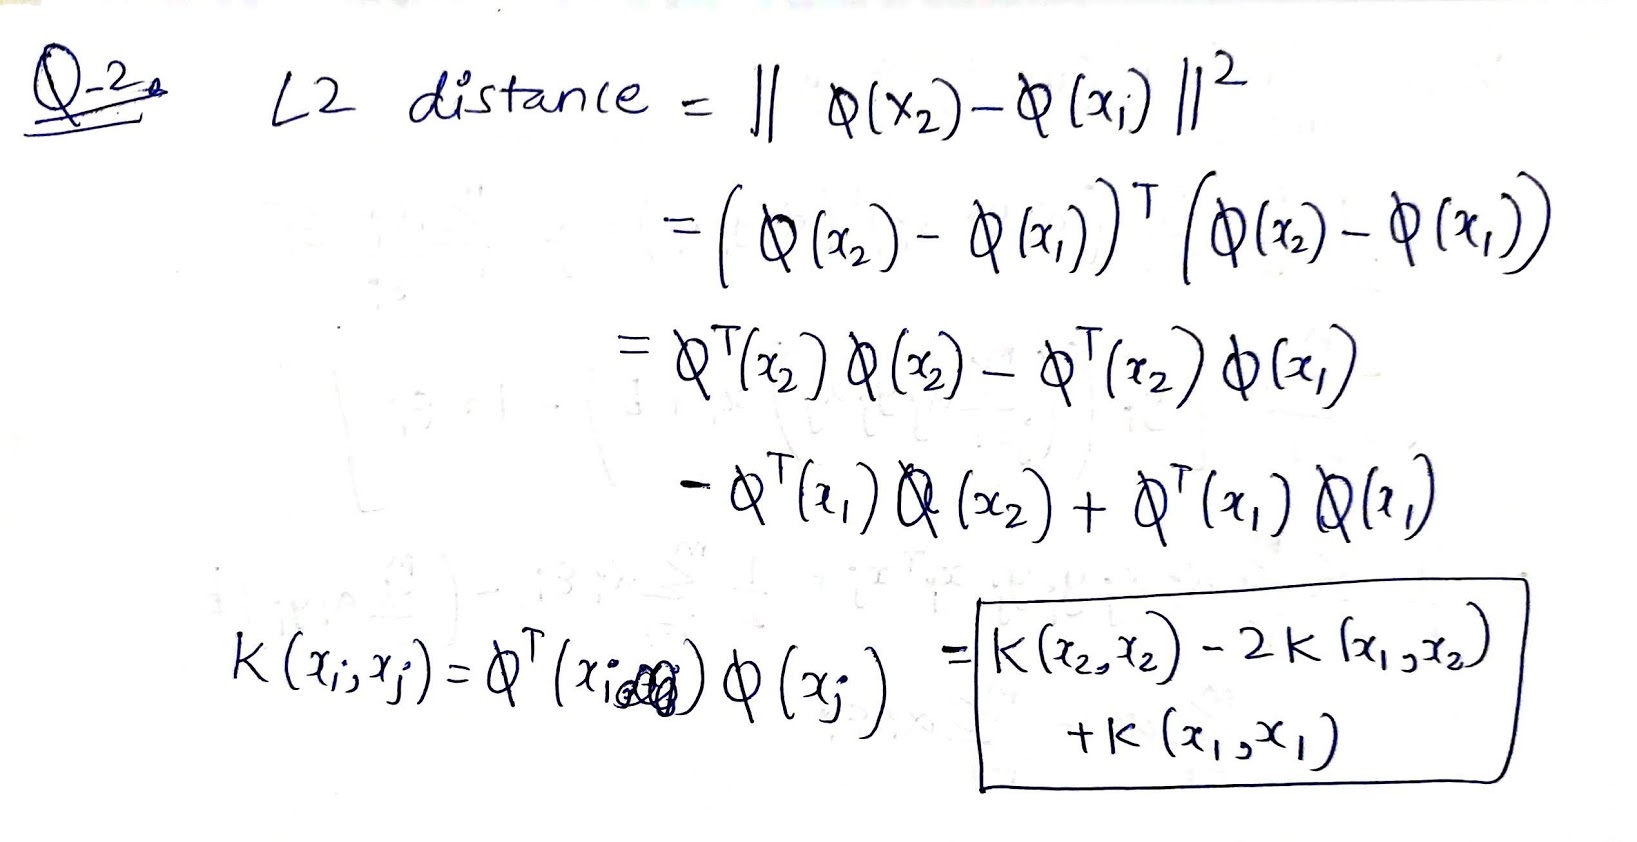 Q-2. L2 distance = || φ(x₂) - φ(x₁) ||²
= (φ(x₂) - φ(x₁))ᵀ (φ(x₂) - φ(x₁))
= φᵀ(x₂) φ(x₂) - φᵀ(x₂) φ(x₁)
- φᵀ(x₁) φ(x₂) + φᵀ(x₁) φ(x₁)
K(xᵢ, xⱼ) = φᵀ(xᵢ) φ(xⱼ) = K(x₂, x₂) - 2K(x₁, x₂)
+ K(x₁, x₁)